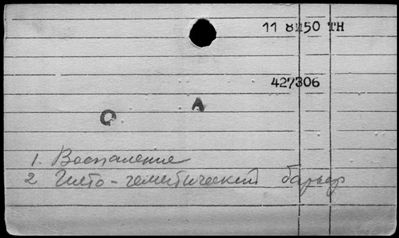 11 8250 TH
427306
O A
1. Воспаление
2 Гисто-гематический барьер